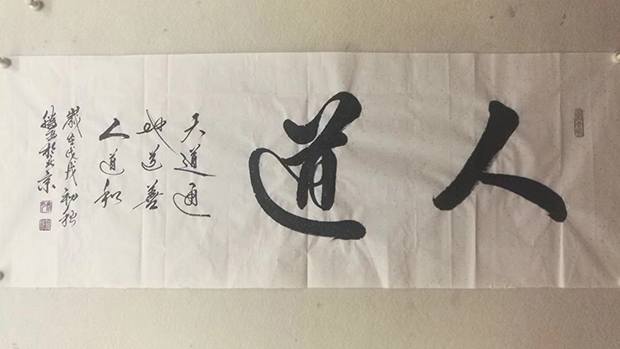 人道
天道通
地道善
人道和
歲在戊戌初秋
於北京